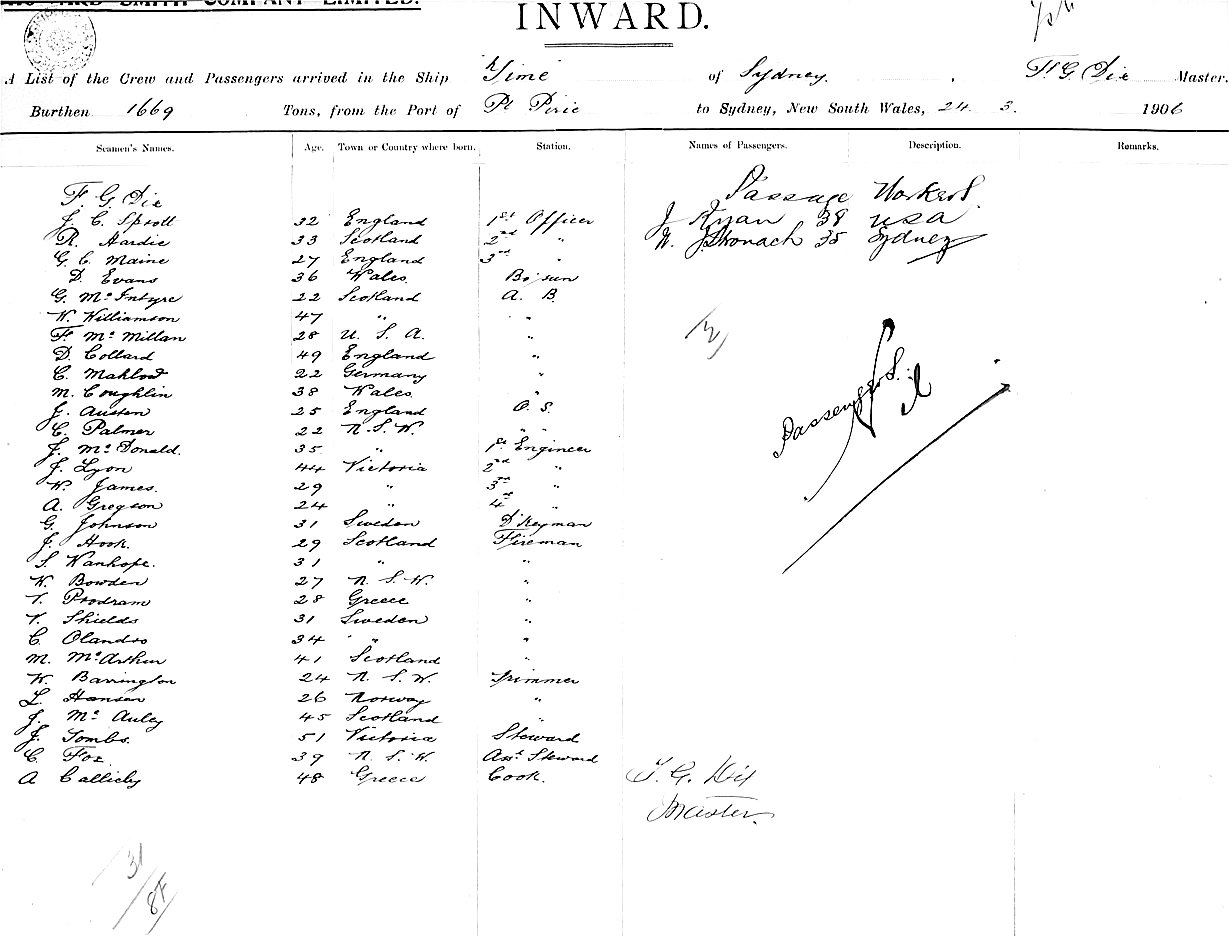 SMITH COMPANY LIMITED.
INWARD.
A List of the Crew and Passengers arrived in the Ship Time of Sydney. F. G. Dix Master.
Burthen 1669 Tons, from the Port of Pt Pirie to Sydney, New South Wales, 24. 3. 1906
Seamen's Names. Age. Town or Country where born. Station. Names of Passengers. Description. Remarks.
F. G. Dix Passage Workers.
J. C. Sprott 32 England 1st Officer J Ryan 38 USA
R. Hardie 33 Scotland 2nd " W. J. Stronach 35 Sydney
G. C. Maine 27 England 3rd "
D. Evans 36 Wales. Bo'sun
G. McIntyre 22 Scotland A. B.
W. Williamson 47 " "
F. McMillan 28 U. S. A. "
D. Collard 49 England "
C. 22 Germany "
M. Coughlin 38 Wales "
G. Austen 25 England O. S.
C. Palmer 22 N. S. W. " "
J. McDonald. 35 " 1st Engineer
J. Lyon 44 Victoria 2nd "
W. James. 29 " 3rd "
A. Gregson 24 " 4 "
G. Johnson 31 Sweden D'keyman
J. Hook. 29 Scotland Fireman
S. Wanhope. 31 " "
W. Bowden 27 N. S. W. "
28 Greece "
Shields 31 Sweden "
C. 34 " "
M. McArthur 41 Scotland "
W. Barrington 24 N. S. W. Trimmer
L. Hansen 26 Norway "
J. McAuley 45 Scotland "
J. Tombs. 51 Victoria Steward
C. Fox. 39 N. S. W. Asst Steward
A 48 Greece Cook.
Passengers.
F. G. Dix
Master.
31